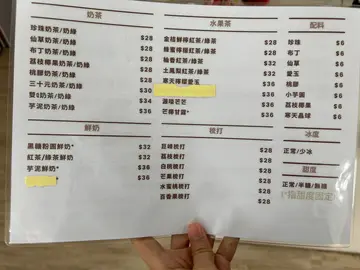 奶茶
珍珠奶茶/奶綠 $28
仙草奶茶/奶綠 $28
布丁奶茶/奶綠 $28
荔枝椰果奶茶/奶綠 $36
桃膠奶茶/奶綠 $36
三十元奶茶/奶綠 $30
雙Q奶茶/奶綠 $34
芋泥奶茶/奶綠 $36
鮮奶
黑糖粉圓鮮奶* $32
紅茶/綠茶鮮奶 $32
芋泥鮮奶* $36
* $36
水果茶
金桔鮮檸紅茶/綠茶 $28
蜂蜜檸檬紅茶/綠茶 $28
柚香紅茶/綠茶 $32
土鳳梨紅茶/綠茶 $32
寒天檸檬愛玉 $36
$36
滿喀芒芒 $36
芒檸甘露* $36
梳打
巨峰梳打 $28
荔枝梳打 $28
白桃梳打 $28
芒果梳打 $28
水蜜桃梳打 $28
百香果梳打 $28
配料
珍珠 $6
布丁 $6
仙草 $6
愛玉 $6
桃膠 $6
小芋圓 $6
荔枝椰果 $6
寒天晶球 $6
冰度
正常/少冰
甜度
正常/半糖/無糖
*指甜度固定